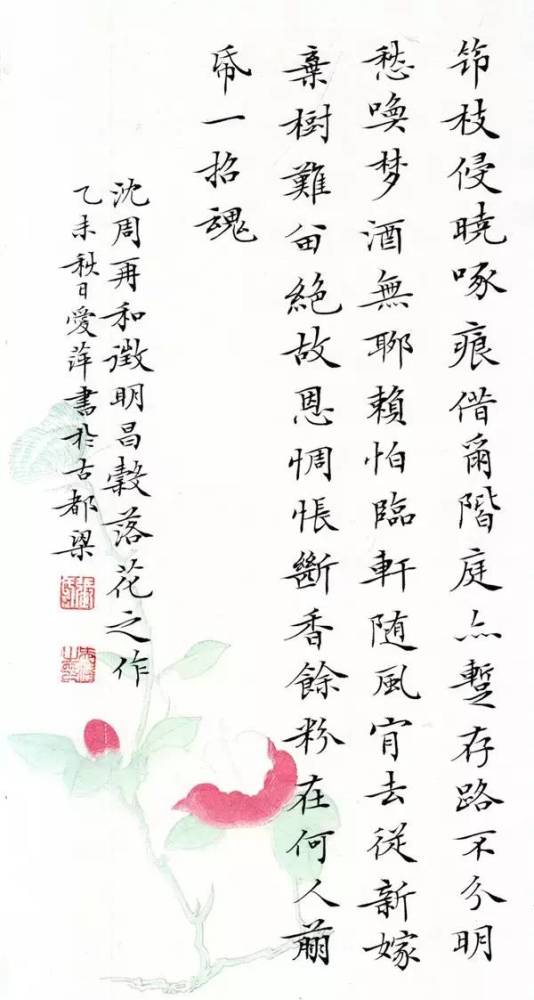 枝侵曉啄痕借爾階庭亦暫存路不分明
愁喚梦酒無聊賴怕臨軒随風肯去從新嫁
棄樹難留絕故恩惆悵斷香餘粉在何人剪
帋一招魂
沈周再和徵明昌穀落花之作
乙未秋日愛萍書於古都梁